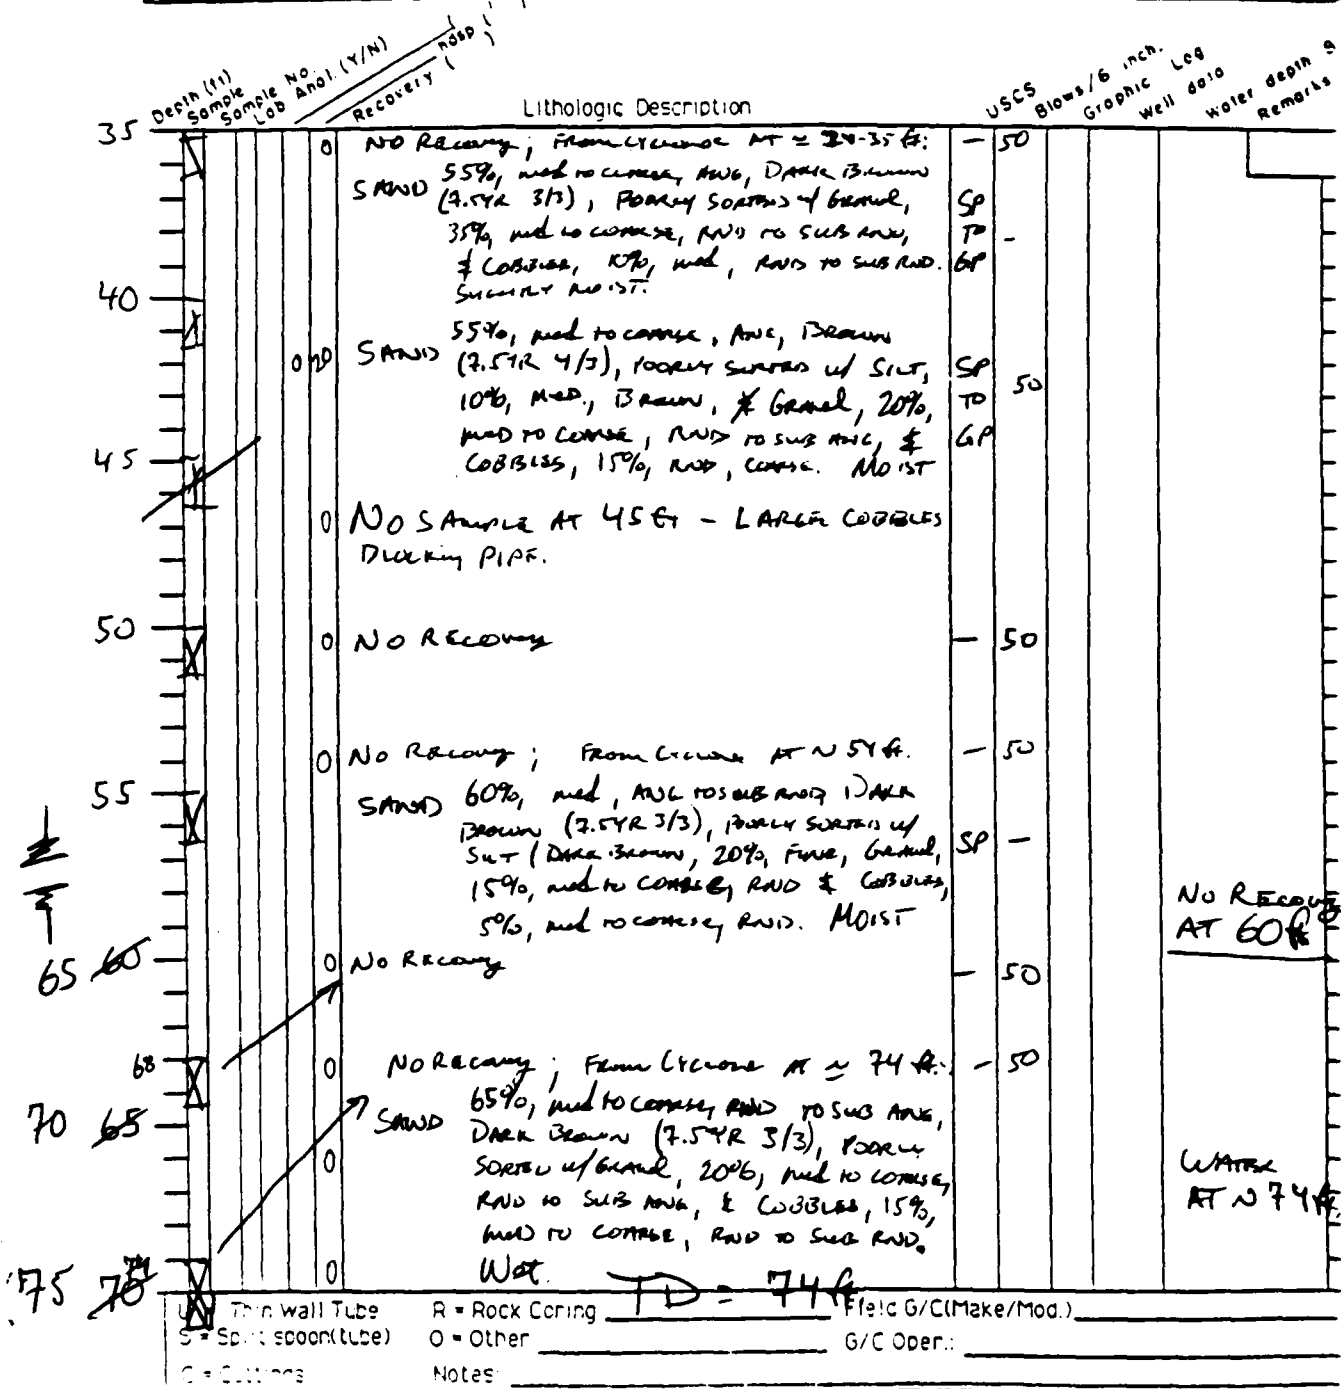 Depth (ft)
Sample
Sample No.
Lab Anal. (Y/N)
Recovery (
Lithologic Description
USCS
Blows/6 inch.
Graphic Log
Well data
Water depth
Remarks
35
0 NO RECOVERY; FROM CYCLONE AT ≈ 34-35 ft: - 50
SAND 55%, med to coarse, ANG, DARK BROWN
(7.5YR 3/3), POORLY SORTED w/ GRAVEL, SP
35%, med to coarse, RND TO SUB RND, TO -
& COBBLES, 10%, med, RND TO SUB RND. GP
SLIGHTLY MOIST.
40
SAND 55%, med to coarse, ANG, BROWN
0 (7.5YR 4/3), POORLY SORTED w/ SILT, SP
10%, MED., BROWN, & GRAVEL, 20%, TO 50
MED TO COARSE, RND TO SUB ANG, & GP
45 COBBLES, 15%, RND, COARSE. MOIST
0 NO SAMPLE AT 45 ft - LARGE COBBLES
BLOCKING PIPE.
50
0 NO RECOVERY - 50
0 NO RECOVERY; FROM CYCLONE AT ~ 54 ft. - 50
55 SAND 60%, med, ANG TO SUB RND, DARK
BROWN (7.5YR 3/3), POORLY SORTED w/
SILT (DARK BROWN, 20%, FINE, GRAVEL, SP -
15%, med to COARSE, RND & COBBLES,
5%, med to coarse, RND. MOIST
NO RECOVE
AT 60 ft
65 60 0 NO RECOVERY - 50
68 0 NO RECOVERY; FROM CYCLONE AT ≈ 74 ft: - 50
65%, med to coarse, RND TO SUB ANG,
70 65 SAND DARK BROWN (7.5YR 3/3), POORLY
0 SORTED w/ GRAVEL, 20%, med to coarse,
RND TO SUB ANG, & COBBLES, 15%,
MED TO COARSE, RND TO SUB RND.
WATER
AT ~ 74 ft.
75 70 74 0 Wet.
TD = 74 ft
Thin Wall Tube R = Rock Coring Field G/C(Make/Mod.)
S = Split spoon(tube) O = Other G/C Oper.:
C = Cuttings Notes: